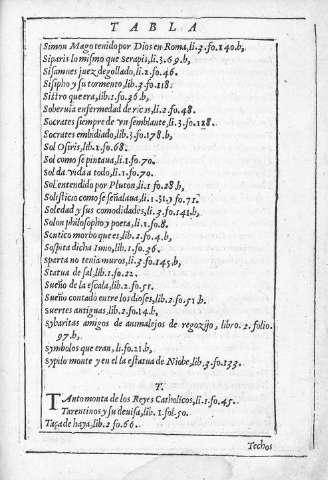 TABLA
Simon Mago tenido por Dios en Roma, li.3.fo.140.b,
Siparis lo mismo que serapis, li.3.69.b,
Sisamnes juez degollado, li.1.fo.46.
Sisipho y su tormento, lib.3.fo.118.
Sistro que era, lib.1.fo.36.b,
Soberuia enfermedad de ricos, li.2.fo.48.
Socrates siempre de vn semblante, li.3.fo.128.
Socrates embidiado, lib.3.fo.178.b,
Sol Osiris, lib.1.fo.68.
Sol como se pintaua, li.1.fo.70.
sol da vida a todo, li.1.fo.70.
Sol entendido por Pluton, li.1.fo.28.b,
Solisticio como se señalaua, li.1.31.y fo.71.
Soledad y sus comodidades, li.3.fo.141.b,
Solon philosopho y poeta, li.1.fo.8.
Scutico morbo que es, lib.2.fo.4.b,
Sospita dicha Iuno, lib.1.fo.36.
sparta no tenia muros, li.3.fo.145.b,
Statua de sal, lib.1.fo.22.
Sueño de la escala, lib.2.fo.51.
Sueño contado entre los dioses, lib.2.fo.51.b.
suertes antiguas, lib.2.fo.14.b,
sybaritas amigos de animalejos de regozijo, libro.2.folio.
97.b,
symbolos que eran, li.fo.21.b,
sypilo monte y en el la estatua de Niobe, lib.3.fo.133.
T.
TAnto monta de los Reyes Catholicos, li.1.fo.45.
Tarentinos y su deuisa, lib.1.fol.50.
Taça de haya, lib.2.fo.66.
Techos